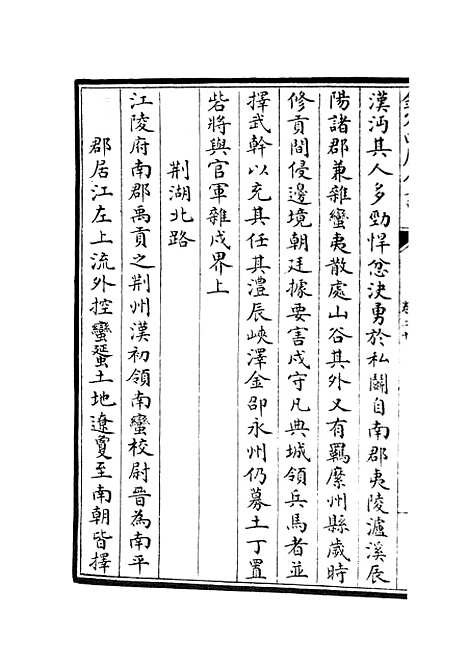 漢沔其人多勁悍忿決勇於私鬭自南郡夷陵瀘溪辰
陽諸郡兼雜蠻夷散處山谷其外又有羈縻州縣歲時
修貢間侵邊境朝廷據要害戍守凡典城領兵馬者並
擇武幹以充其任其澧辰峽澤金邵永州仍募土丁置
砦將與官軍雜戍界上
荆湖北路
江陵府南郡禹貢之荆州漢初領南蠻校尉晉為南平
郡居江左上流外控蠻蜑土地遼敻至南朝皆擇